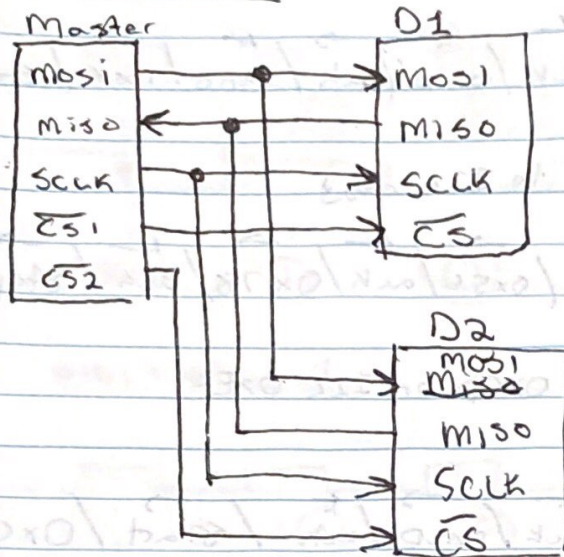 Master
MOSI
MISO
SCLK
C̅S̅1̅
C̅S̅2̅
D1
MOSI
MISO
SCLK
C̅S̅
D2
MOSI
MISO
MISO
SCLK
C̅S̅